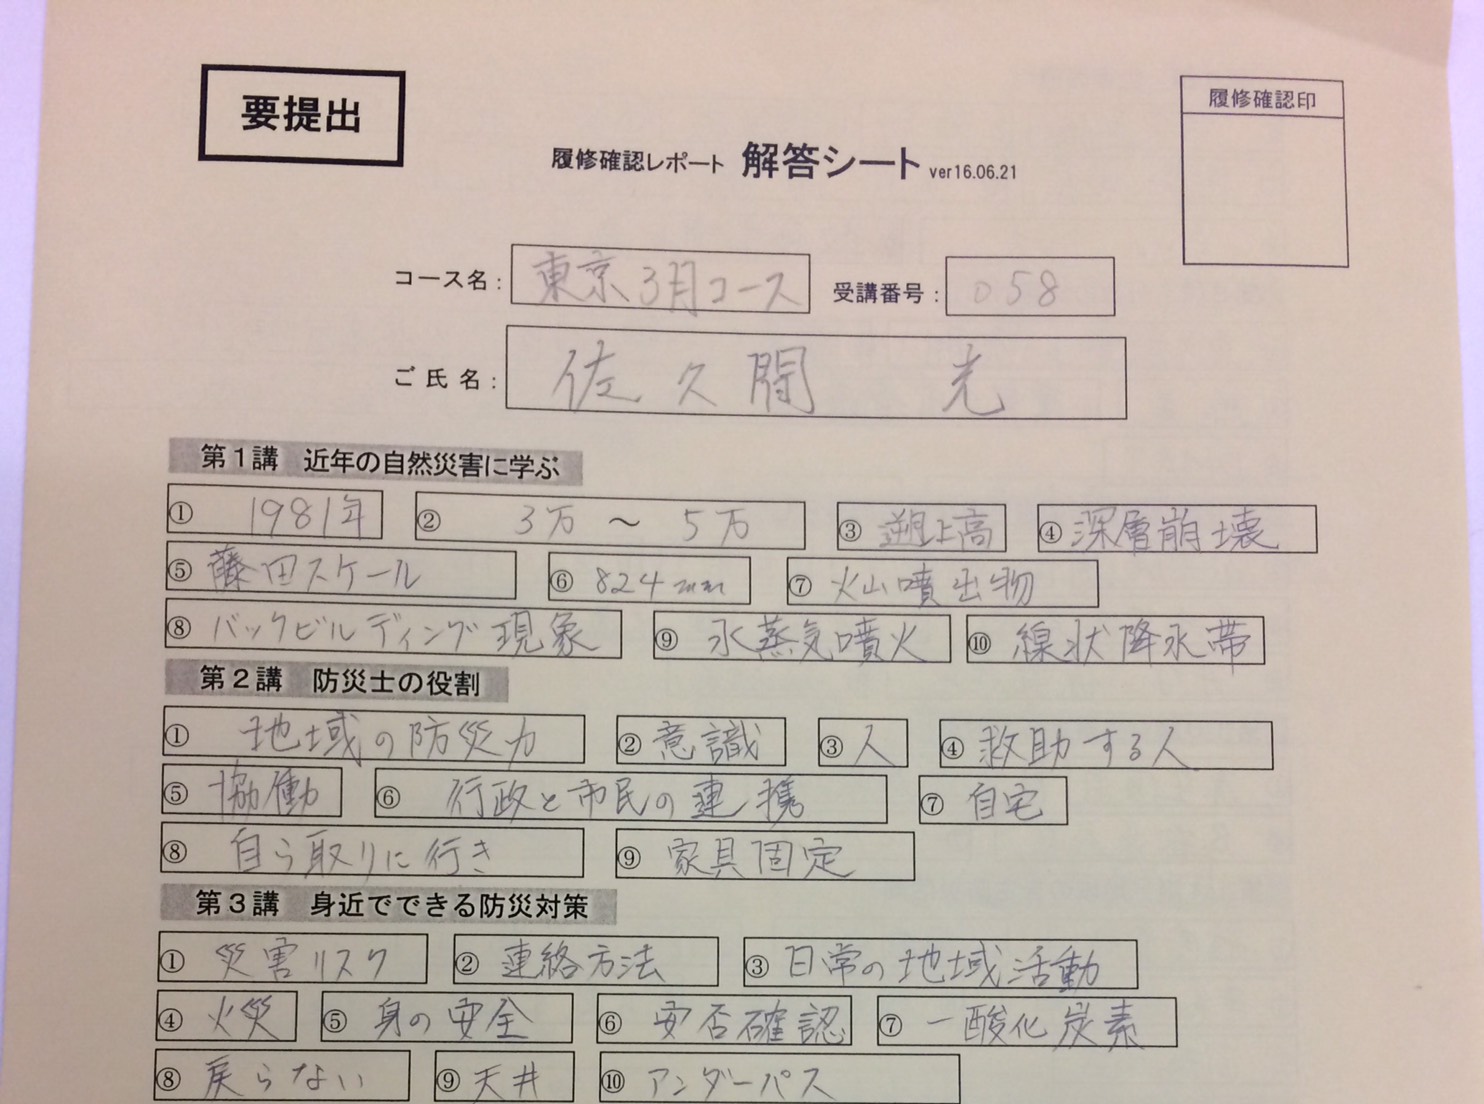 要提出
履修確認印
履修確認レポート 解答シート ver16.06.21
コース名： 東京3月コース 受講番号： 058
ご氏名： 佐久間 光
第1講 近年の自然災害に学ぶ
① 1981年 ② 3万～5万 ③ 遡上高 ④ 深層崩壊
⑤ 藤田スケール ⑥ 824mm ⑦ 火山噴出物
⑧ バックビルディング現象 ⑨ 水蒸気噴火 ⑩ 線状降水帯
第2講 防災士の役割
① 地域の防災力 ② 意識 ③ 人 ④ 救助する人
⑤ 協働 ⑥ 行政と市民の連携 ⑦ 自宅
⑧ 自ら取りに行き ⑨ 家具固定
第3講 身近でできる防災対策
① 災害リスク ② 連絡方法 ③ 日常の地域活動
④ 火災 ⑤ 身の安全 ⑥ 安否確認 ⑦ 一酸化炭素
⑧ 戻らない ⑨ 天井 ⑩ アンダーパス